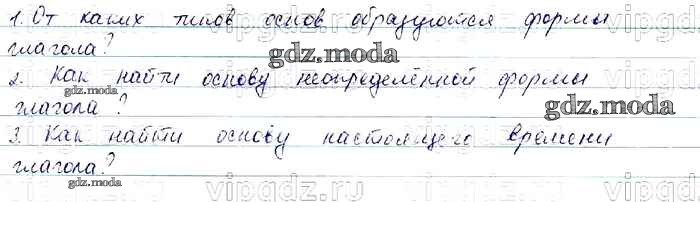 1. От каких типов основ образуются формы
глагола?
gdz.moda
2. Как найти основу неопределённой формы
глагола?
gdz.moda
3. Как найти основу настоящего времени
глагола?
gdz.moda
vipgdz.ru